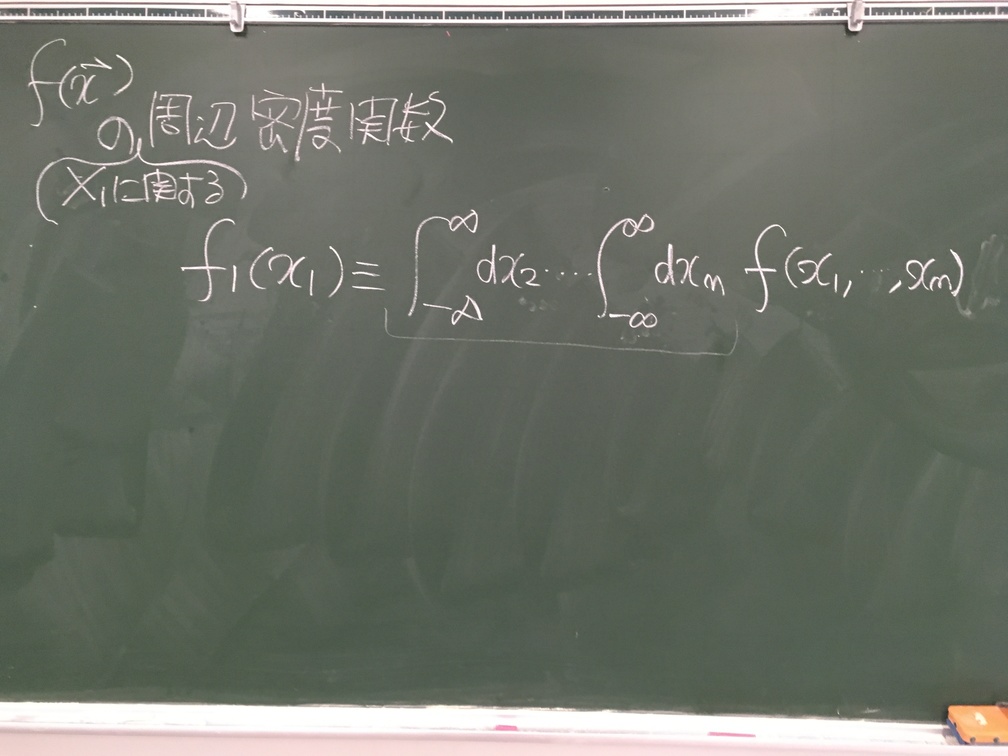 f(x⃗)
の周辺密度関数
(X₁に関する)
f₁(x₁) ≡ ∫_{-∞}^{∞} dx₂ ⋯ ∫_{-∞}^{∞} dxₘ f(x₁, ⋯, xₘ)